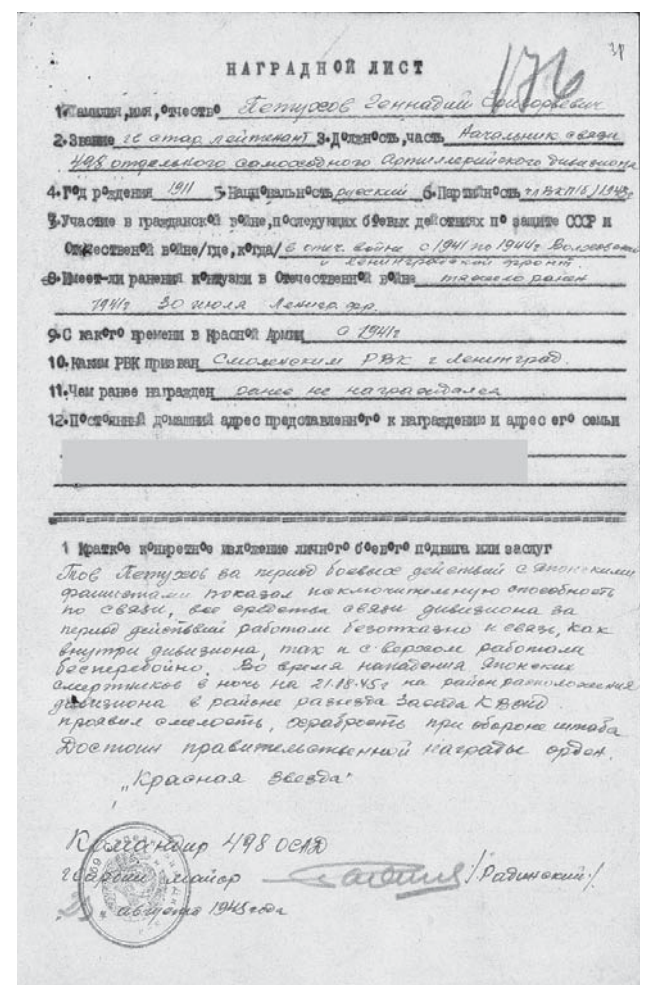 176
НАГРАДНОЙ ЛИСТ
1. Фамилия, имя, отчество Петухов Геннадий Григорьевич
2. Звание гв стар лейтенант 3. Должность, часть Начальник связи
498 отдельного самоходного Артиллерийского дивизиона
4. Год рождения 1911 5. Национальность русский 6. Партийность чл ВКП(б) 1943г
7. Участие в гражданской войне, последующих боевых действиях по защите СССР и
Отечественной войне/где, когда/ в отеч. войне с 1941 по 1944г Волховский
и Ленинградской фронт.
8. Имеет-ли ранения контузии в Отечественной войне тяжело ранен
1941г 30 июля Ленигр. фр.
9. С какого времени в Красной Армии с 1941г
10. Каким РВК призван Смоленским РВК г Ленинград.
11. Чем ранее награжден ранее не награждался
12. Постоянный домашний адрес представленного к награждению и адрес его семьи
1 Краткое конкретное изложение личного боевого подвига или заслуг
Тов Петухов за период боевых действий с Японскими
фашистами показал исключительную способность
по связи, все средства связи дивизиона за
период действий работали безотказно и связь, как
внутри дивизиона, так и с верхом работали
бесперебойно. Во время нападения Японских
смертников в ночь на 21.08.45г на район расположения
дивизиона в районе разъезда
проявил смелость, храбрость при обороне штаба
Достоин правительственной награды орден.
„Красная звезда"
Командир 498 ОСАД
гвардии майор /Радинский/.
25 августа 1945 года